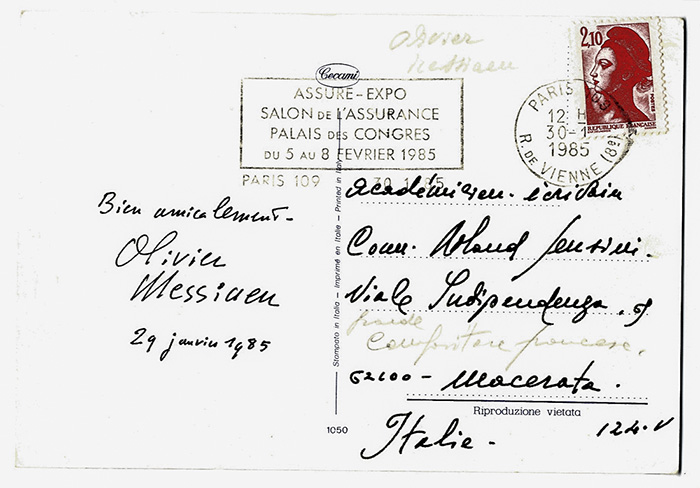 Olivier
Messiaen
2,10
POSTES
REPUBLIQUE FRANÇAISE
Cecami
ASSURE-EXPO
SALON DE L'ASSURANCE
PALAIS DES CONGRES
DU 5 AU 8 FEVRIER 1985
PARIS 109 30 1 85
PARIS 109
12 H
30-1
1985
R. DE VIENNE (8e)
Bien amicalement-
Olivier
Messiaen
29 janvier 1985
Stampato in Italia - Imprimé en Italie - Printed in Italy
1050
Académicien-écrivain
Comm. Roland
Viale Indipendenza,
grande
Compositore francese.
62100 - Macerata.
Riproduzione vietata
Italie -
124.V